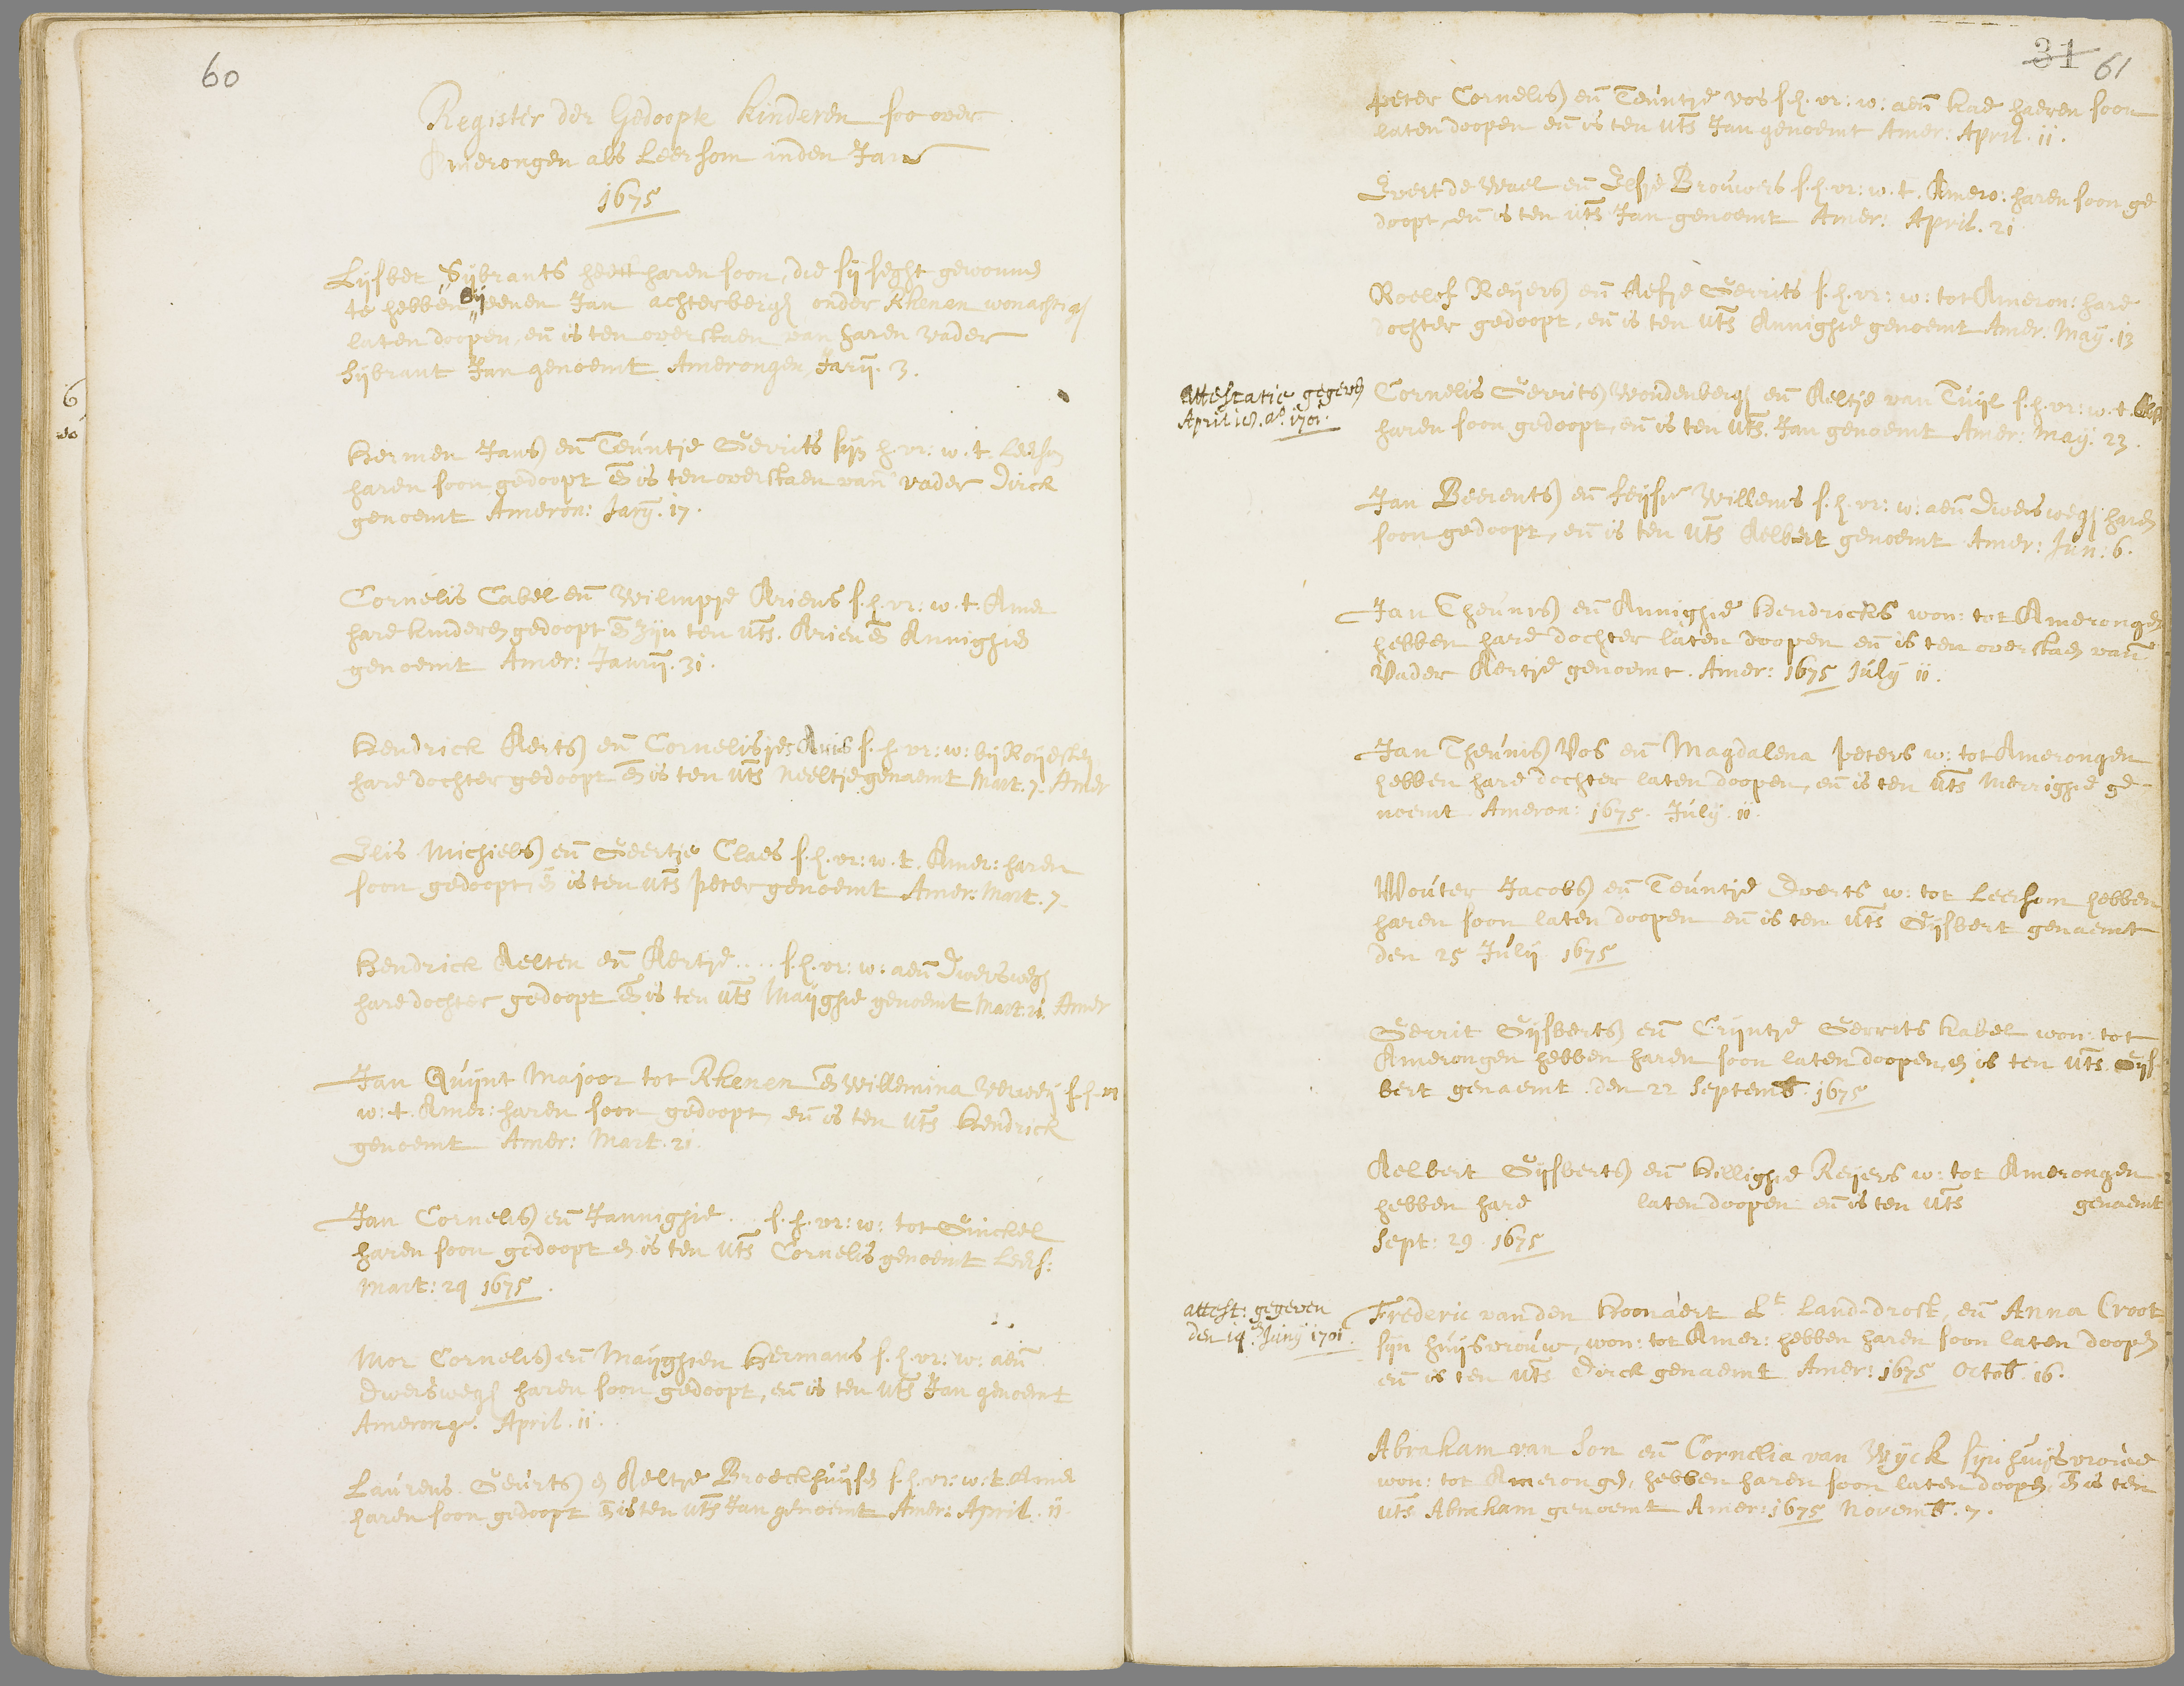 60
Register der Gedoopte kinderen soo over
Amerongen als Leersom inden Jare
1675
Lijsbet Sijbrants heett haren soon, die sij seght gewonne
te hebben bij eenen Jan achterbergh onder Rhenen wonachtigh
laten doopen, en is ten overstaen van haren vader
Sijbrant Jan genoemt Amerongen, Jary. 3.
Hermen Jans en Teuntje Gerrits sijn h. vr: w. t. Leers
haren soon gedoopt en is ten overstaen van vader Dirck
genoemt Ameron: Jary. 17.
Cornelis Cabel en Wilmpje Ariens s. h. vr: w. t. Amer
hare kinderen gedoopt en zijn ten uts. Arien en Annighie
genoemt Amer: Janry. 31.
Hendrick Aerts en Cornelisje Anis s. h. vr: w: bij Roijestei
hare dochter gedoopt en is ten uts Neeltje genaemt Mart. 7. Amer
Elis Michiels en Geertje Claes s. h. vr: w. t. Amer: haren
soon gedoopt, en is ten uts Peter genoemt Amer: Mart. 7.
Hendrick Aelten en Aertje .... s. h. vr: w: aen Dwerswegh
hare dochter gedoopt en is ten uts Maijghie genoemt Mart. 21. Amer
Jan Quijnt Majoor tot Rhenen en Willemina s. h. vr
w: t. Amer: haren soon gedoopt, en is ten uts Hendrick
genoemt Amer: Mart. 21.
Jan Cornelis en Jannighie ... s. h. vr: w: tot Ginckel
haren soon gedoopt en is ten uts Cornelis genoemt Leers:
Mart: 29 1675.
Mor Cornelis en Maijghien Hermans s. h. vr: w: aen
Dwerswegh haren soon gedoopt, en is ten uts Jan genoemt
Amerong. April. 11.
Laurens Geurts en Aeltje Broeckhuijse s. h. vr: w: t. Amer
haren soon gedoopt en is ten uts Jan genoemt Amer: April. 11.
31 61
Peter Cornelis en Teuntje vos s. h. vr: w: aen kae haren soon
laten doopen en is ten uts Jan genoemt Amer: April. 11.
Evert de Wael en Elsje Brouwers s. h. vr: w. t. Amero: haren soon ge
doopt, en is ten uts Jan genoemt Amer: April. 21
Roelof Reijers en Aefje Gerrits s. h. vr: w: tot Ameron: hare
dochter gedoopt, en is ten uts Annighie genoemt Amer: May. 13
Attestatie gegeven
April 10. ao. 1701.
Cornelis Gerrits Woudenbergh en Aeltje van Tuijl s. h. vr: w. t.
haren soon gedoopt, en is ten uts. Jan genoemt Amer: May. 23.
Jan Beerents en Feijsje Willems s. h. vr: w: aen Dwerswegh haren
soon gedoopt, en is ten uts Aelbert genoemt Amer: Jun: 6.
Jan Theunis en Annighie Hendricks won: tot Amerongen
hebben hare dochter laten doopen en is ten overstaen van
Vader Aertje genoemt. Amer: 1675 July 11.
Jan Theunis Vos en Magdalena Peters w: tot Amerongen
hebben hare dochter laten doopen, en is ten uts Merrighie ge-
noemt Ameron: 1675. July. 11.
Wouter Jacobs en Teuntje Everts w: tot Leersom hebben
haren soon laten doopen en is ten uts Gijsbert genaemt
den 25 July 1675
Gerrit Gijsberts en Crijntje Gerrits Kabel won: tot
Amerongen hebben haren soon laten doopen, en is ten uts. Gijs-
bert genaemt. den 22 Septemb. 1675
Aelbert Gijsberts en Hillighie Reijers w: tot Amerongen
hebben hare laten doopen en is ten uts genaemt
Sept: 29. 1675
attest: gegeven
den 19 Junij 1701.
Frederic van den Hoonaert Lt. Land-drost, en Anna Croot
sijn huijsvrouw, won: tot Amer: hebben haren soon laten doopen
en is ten uts Dirck genaemt Amer: 1675 Octob. 16.
Abraham van Son en Cornelia van Wijck sijn huijsvrouw
won: tot Amerongen, hebben haren soon laten doopen, en is ten
uts Abraham genoemt Amer: 1675 Novemb. 7.